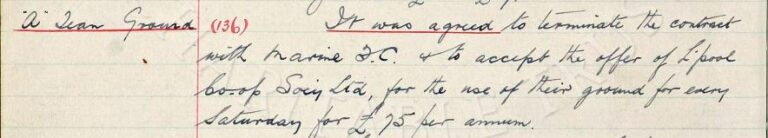 "A" Team Ground (136) It was agreed to terminate the contract
with Marine F.C. & to accept the offer of L'pool
Co-op Socy Ltd, for the use of their ground for every
Saturday for £75 per annum.